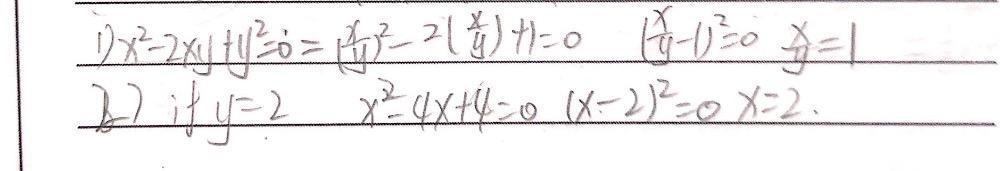 1) x²-2xy+y²=0 = (x/y)²-2(x/y)+1=0 (x/y-1)²=0 x/y=1
2) if y=2 x²-4x+4=0 (x-2)²=0 x=2.